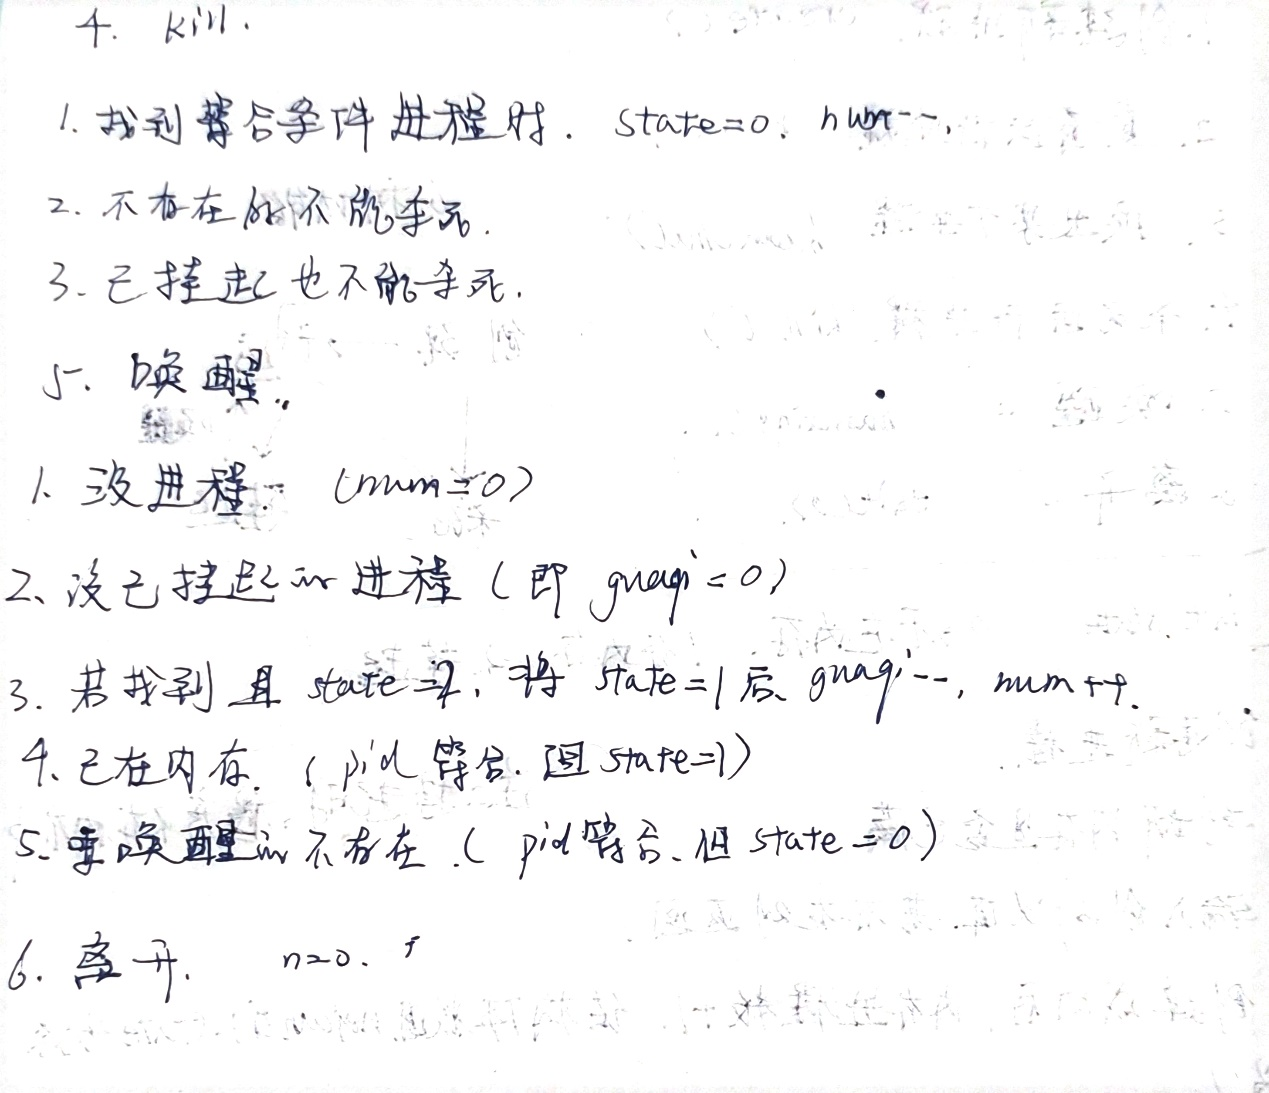 4. kill.
1. 找到符合条件进程时. state=0. num--.
2. 不存在的不能杀死.
3. 已挂起也不能杀死.
5. 唤醒.
1. 没进程. (num=0)
2、没已挂起的进程(即 guaqi=0)
3. 若找到且 state=2. 将 state=1后、guaqi--, num++.
4、已在内存. (pid 符合. 但 state=1)
5、要唤醒的不存在.(pid符合、但 state=0)
6. 离开. n=0.